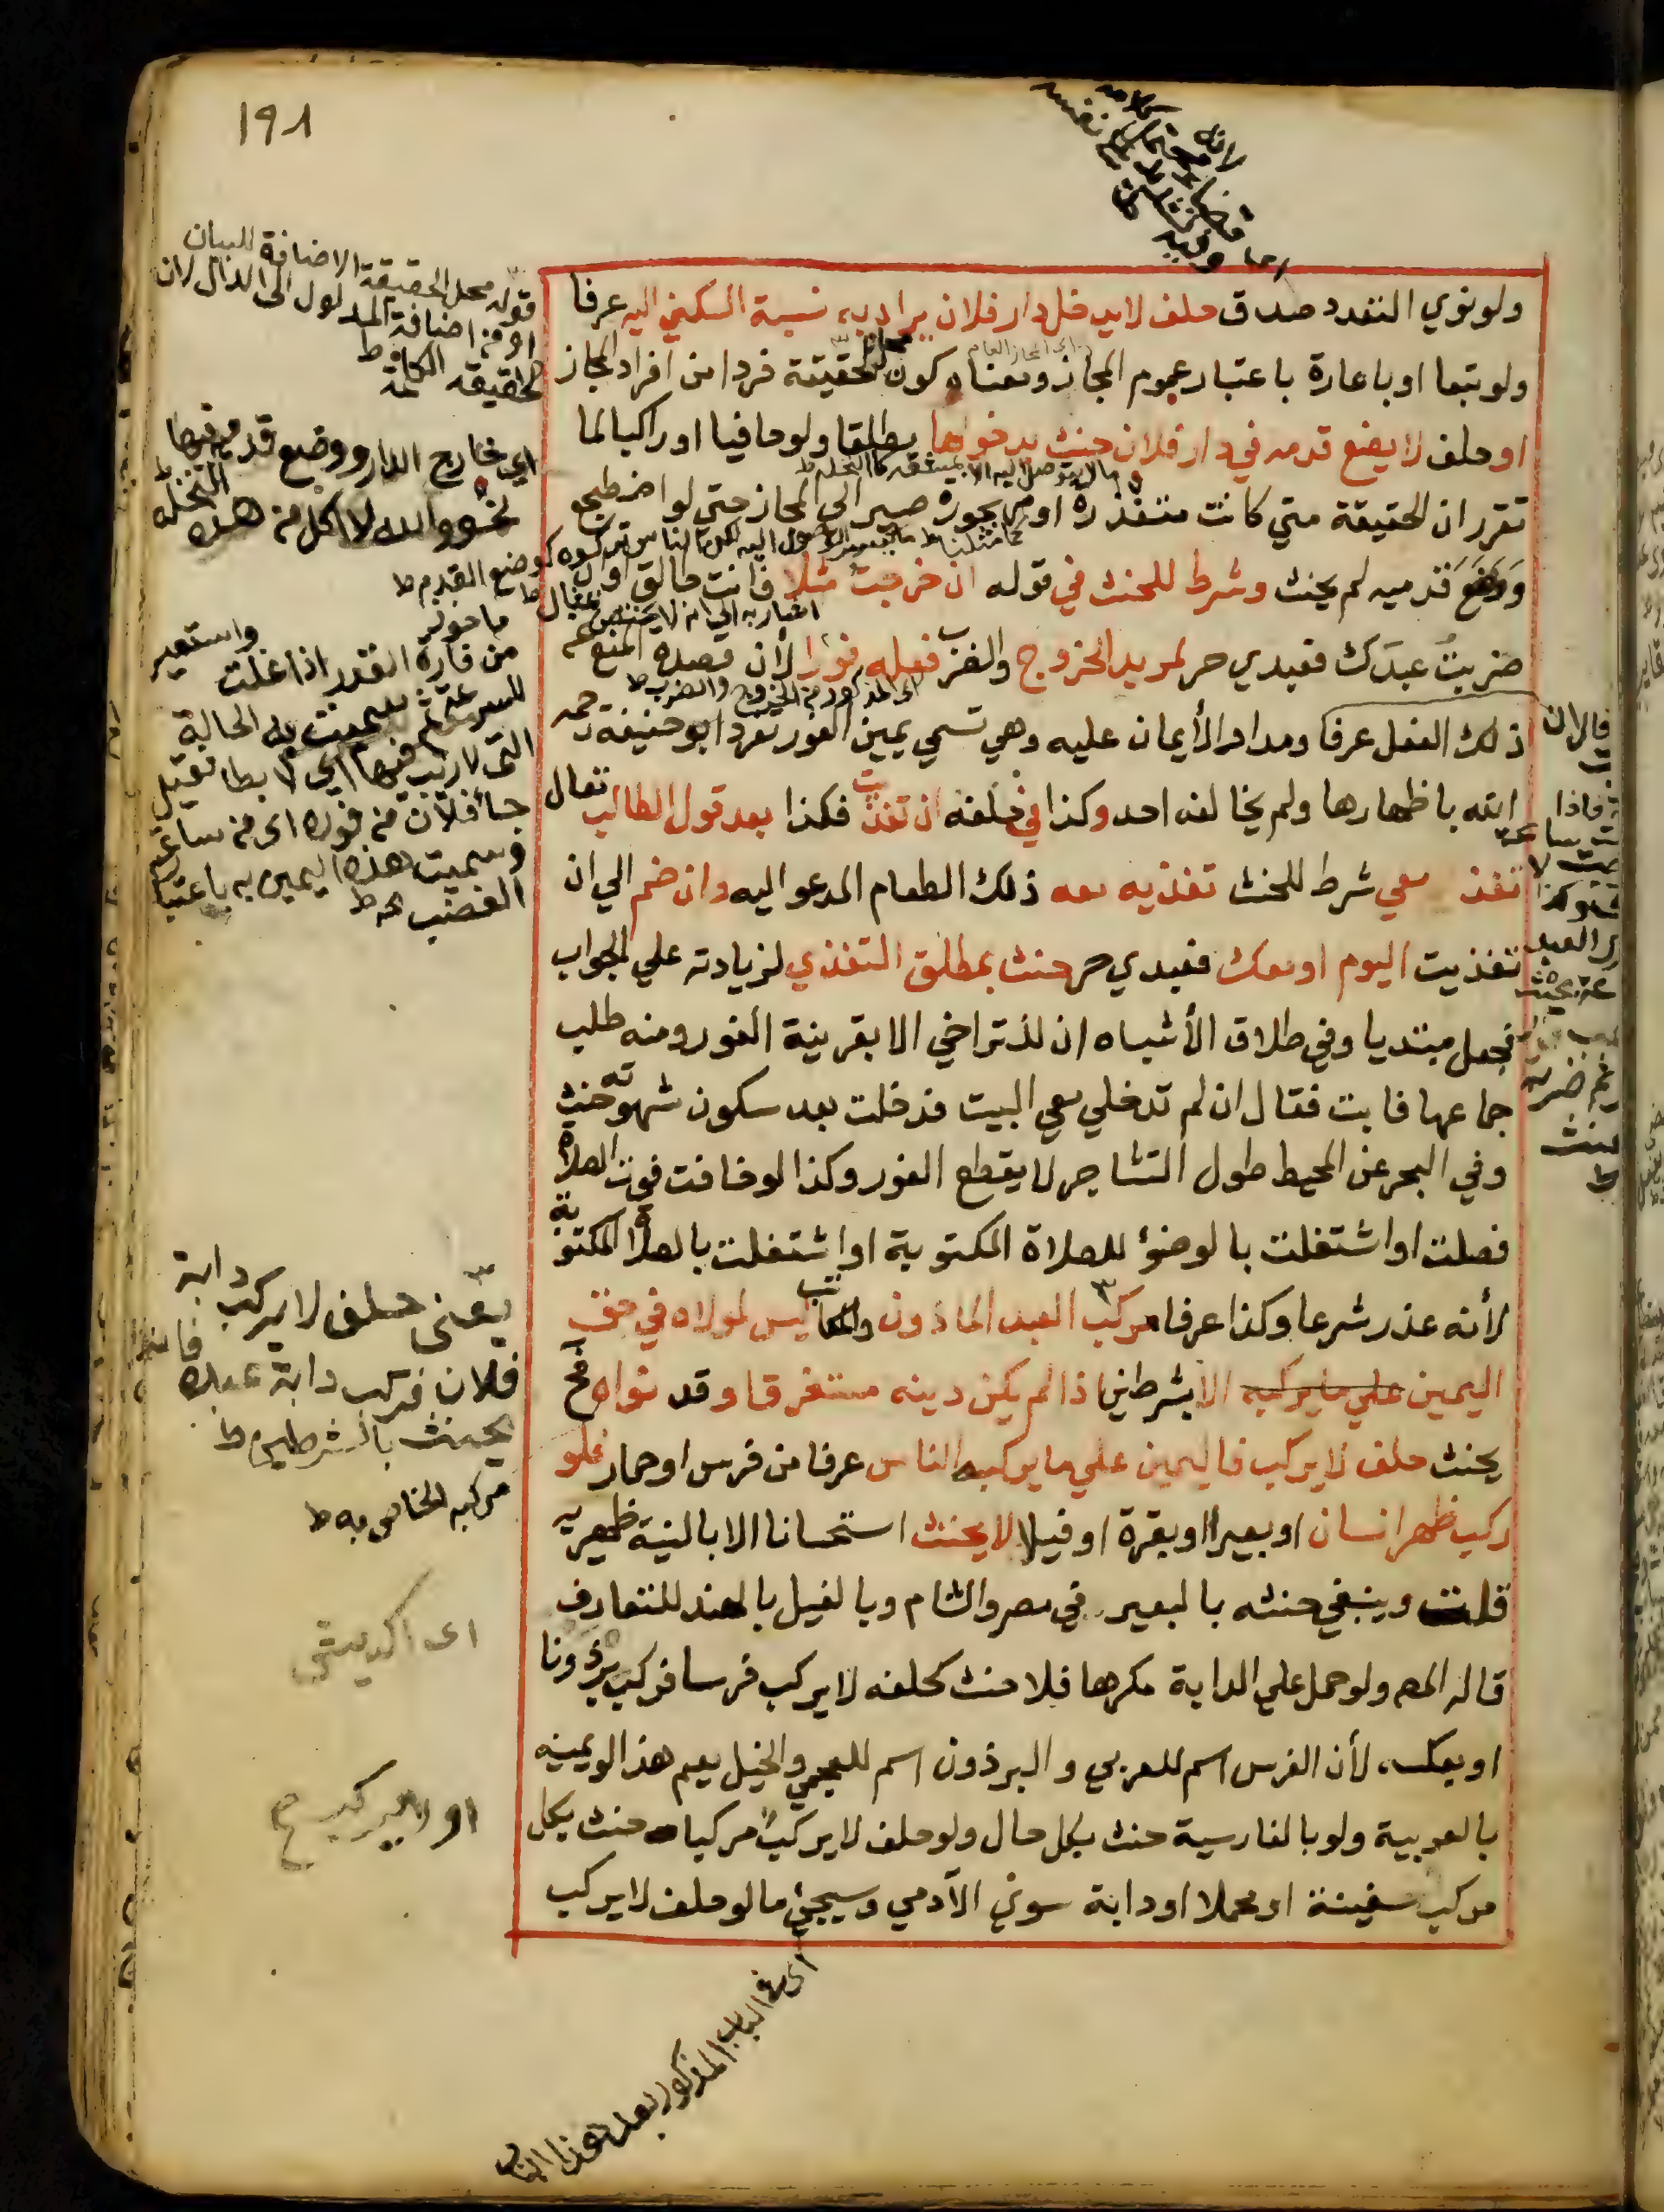 ١٩٨
ولو نوي التعدد صدق حلف لا يدخل دار فلان يراد به نسبة السكني اليه عرفا
ولو تبعا او باعارة باعتبار عموم المجاز ومعناه كون محل الحقيقة فردا من افراد المجاز
او حلف لا يضع قدمه في دار فلان حنث بدخولها مطلقا ولو حافيا او راكبا لما
تقرر ان الحقيقة متي كانت متعذرة او مهجورة صير الي المجاز حتي لو اضطجع
ووضع قدميه لم يحنث وشرط للحنث في قوله ان خرجت مثلا فانت طالق او ان
ضربت عبدك فعبدي حر لمريد الخروج والضرب فعله فورا لأن قصده المنع عن
ذلك الفعل عرفا ومدار الأيمان عليه وهي تسمي يمين الفور تفرد ابو حنيفة رحمه
الله باظهارها ولم يخالفه احد وكذا في حلفه ان تغديت فكذا بعد قول الطالب تعال
تغذ معي شرط للحنث تغذيه معه ذلك الطعام المدعو اليه وان ضم الي ان
تغذيت اليوم او معك فعبدي حر حنث بمطلق التغذي لزيادته علي الجواب
فجعل مبتديا وفي طلاق الأشباه ان للتراخي الا بقرينة الفور ومنه طلب
جماعها فابت فقال ان لم تدخلي معي البيت فدخلت بعد سكون شهوته حنث
وفي البحر عن المحيط طول التشاجر لا يقطع الفور وكذا لو خافت فوت الصلاة
فصلت او اشتغلت بالوضؤ للصلاة المكتوبة او اشتغلت بالصلاة المكتوبة
لأنه عذر شرعا وكذا عرفا مركب العبد الماذون والمكاتب ليس لمولاه في حق
اليمين علي ما يركبه الا بشرطين اذا لم يكن دينه مستغرقا وقد نواه فح
يحنث حلف لا يركب فاليمين علي ما يركبه الناس عرفا من فرس او حمار فلو
ركب ظهر انسان او بعيرا او بقرة او فيلا لا يحنث استحسانا الا بالنية ظهيريه
قلت وينبغي حنثه بالبعير في مصر والشام وبالفيل بالهند للتعارف
قاله المص ولو حمل علي الدابة مكرها فلا حنث كحلفه لا يركب فرسا فركب برذونا
او بعكسه لأن الفرس اسم للعربي والبرذون اسم للعجمي والخيل يعم هذا لو يمينه
بالعربية ولو بالفارسية حنث بكل حال ولو حلف لا يركب مركبا حنث بكل
مركب سفينة او محملا او دابة سوي الآدمي وسيجئ ما لو حلف لا يركب
قوله محل الحقيقة الاضافة للبيان
او من اضافة المدلول الي الدال لان
الحقيقه الكلمة ط
اي خارج الدار ووضع قدميه فيها ط
نحو والله لا اكل من هذه النخله
كوضع القدم ط
ماخوذ
من فارت القدر اذا غلت واستعير
للسرعة ثم سميت به الحالة
التي لا ريب فيها اي لا بطا فقيل
جا فلان من فوره اي من ساعته
وسميت هذه اليمين به باعتبار
الغضب
يعني حلف لا يركب دابة
فلان فركب دابة عبده
يحنث بالشرطين ط
مركبه الخاص به ط
اي اكديش
اي في الباب المذكور بعد هذا الباب